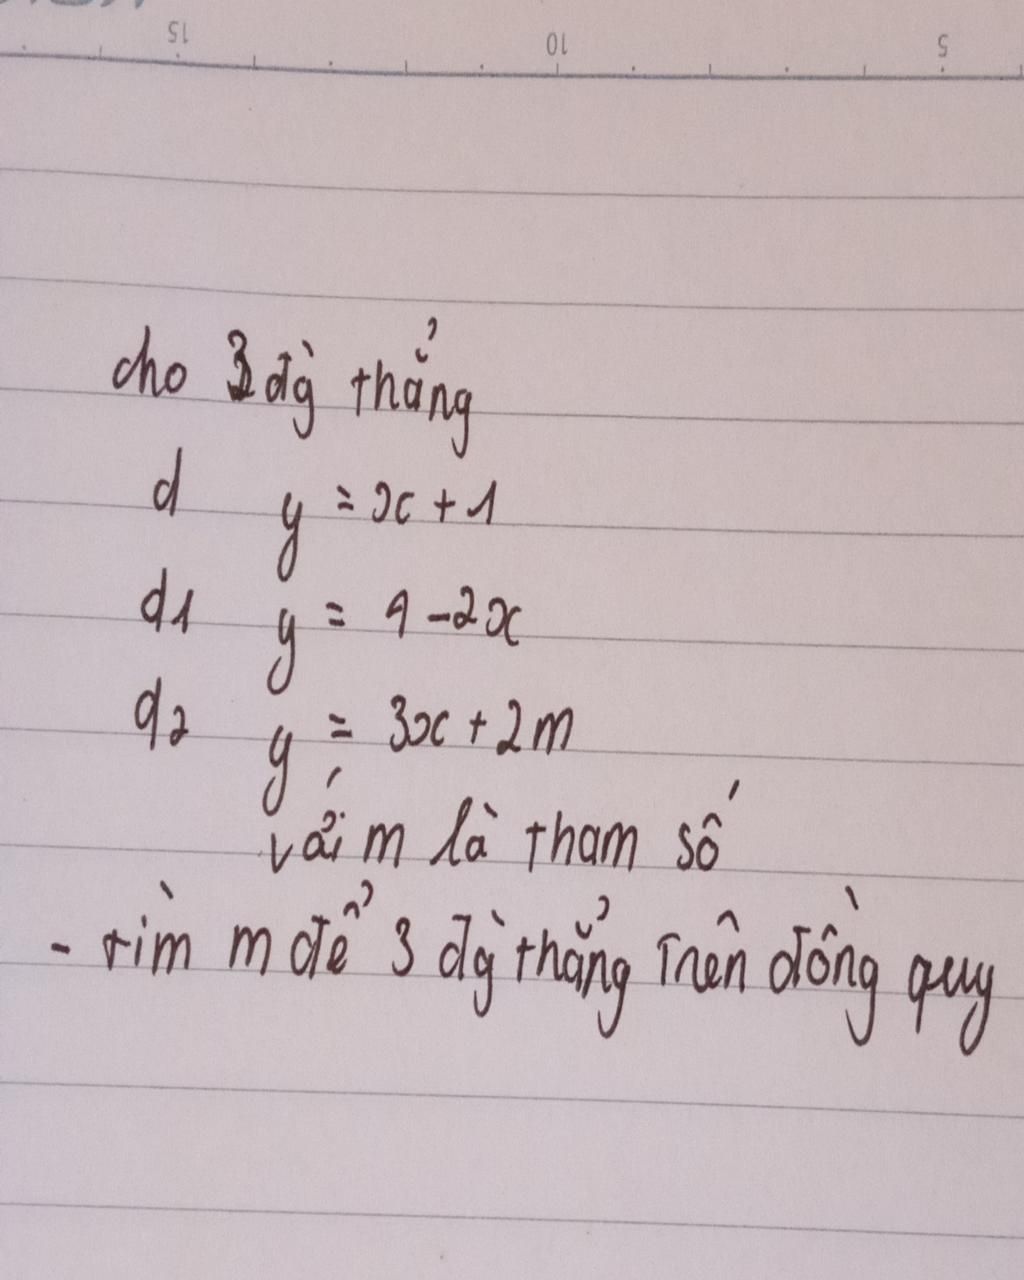 15 10 5
cho 3 đg̀ thẳng
d y = x + 1
d1 y = 4 - 2x
d2 y = 3x + 2m
với m là tham số
- tìm m để 3 đg̀ thẳng trên đồng quy